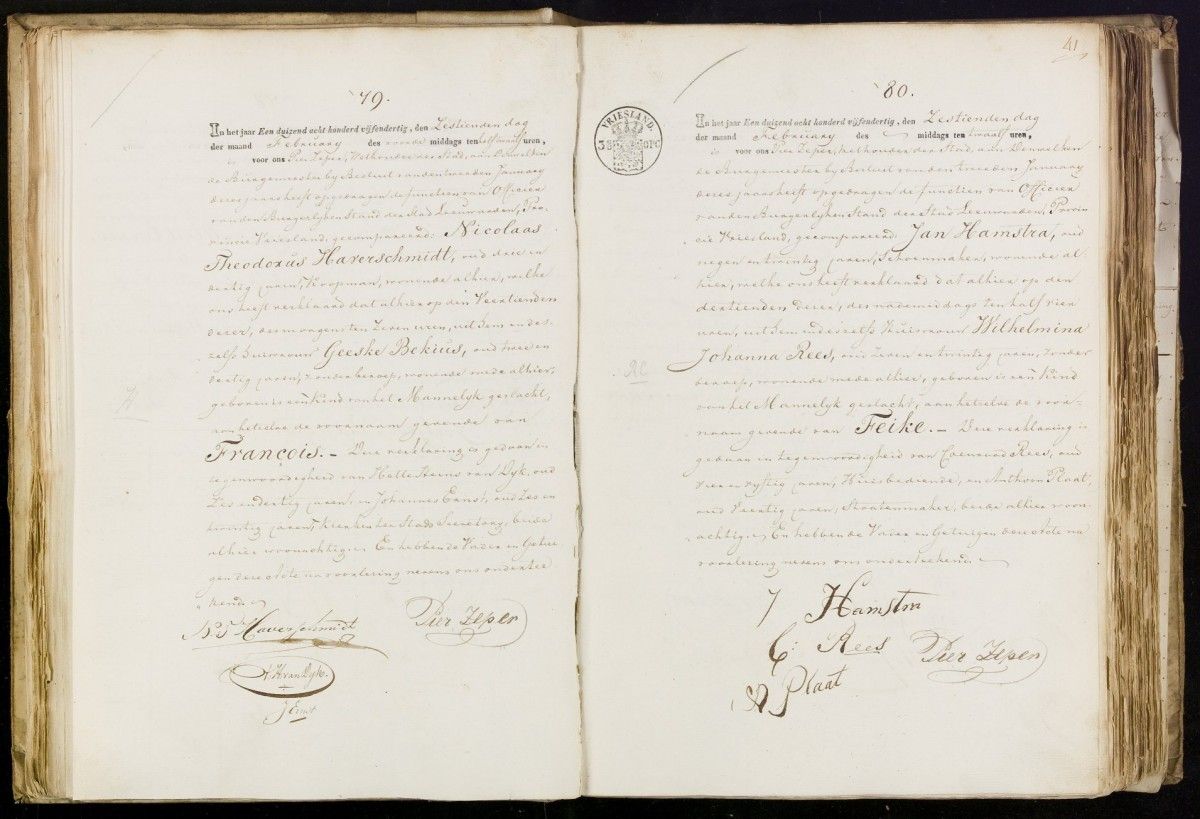 79.
In het jaar Een duizend acht honderd vijfendertig, den Zestienden dag
der maand February des voorde middags ten half twaalf uren,
voor ons Pier Zeper, Wethouder der Stad, aan Denwelken
de Burgemeester by Besluit van den tweeden January
dezes jaars heeft opgedragen de functien van Officier
van den Burgerlyken Stand der Stad Leeuwarden, Pro-
vincie Vriesland, gecompareerd: Nicolaas
Theodorus Haverschmidt, oud drie en
dertig jaren, Koopman, wonende alhier, welke
ons heeft verklaard dat alhier op den Veertienden
dezer, des morgens ten Zeven uren, uit hem en des-
zelfs huisvrouw Geeske Bekius, oud twee en
dertig jaren, zonder beroep, wonende mede alhier,
geboren is een Kind van het Mannelyk geslacht,
aan hetzelve de voornaam gevende van
François. – Deze verklaring is gedaan in
tegenwoordigheid van Helle Heerns van Dyk, oud
Zes en dertig jaren en Johannes Ernst, oud Zes en
twintig jaren, Klerken ter Stads Secretary, beide
alhier woonachtig. En hebbende Vader en Getui-
gen deze Acte na voorlezing nevens ons ondertee-
kend.
N. T. Haverschmidt
Pier Zeper
H. H. van Dyk.
J Ernst
41
80.
VRIESLAND.
In het jaar Een duizend acht honderd vijfendertig, den Zestienden dag
der maand February des middags ten twaalf uren,
voor ons Pier Zeper, Wethouder der Stad, aan Denwelken
de Burgemeester by Besluit van den tweeden January
dezes jaars heeft opgedragen de functien van Officier
van den Burgerlyken Stand der Stad Leeuwarden, Provin-
cie Vriesland, gecompareerd Jan Hamstra, oud
negen en twintig jaren, Schoenmaker, wonende al-
hier, welke ons heeft verklaard dat alhier op den
dertienden dezer, des nademiddags ten half vier
uren, uit hem en deszelfs Huisvrouw Wilhelmina
Johanna Rees, oud Zeven en twintig jaren, zonder
beroep, wonende mede alhier, geboren is een Kind
van het Mannelyk geslacht, aan hetzelve de voor-
naam gevende van Feike. – Deze verklaring is
gedaan in tegenwoordigheid van Coenraad Rees, oud
vyftig jaren, Huisbediende, en Anthoon Plaat,
oud Veertig jaren, Straatenmaker, beide alhier woon-
achtig. En hebbende Vader en Getuigen deze Acte na
voorlezing nevens ons onderteekend.
J Hamstra
C: Rees
Pier Zeper
A Plaat